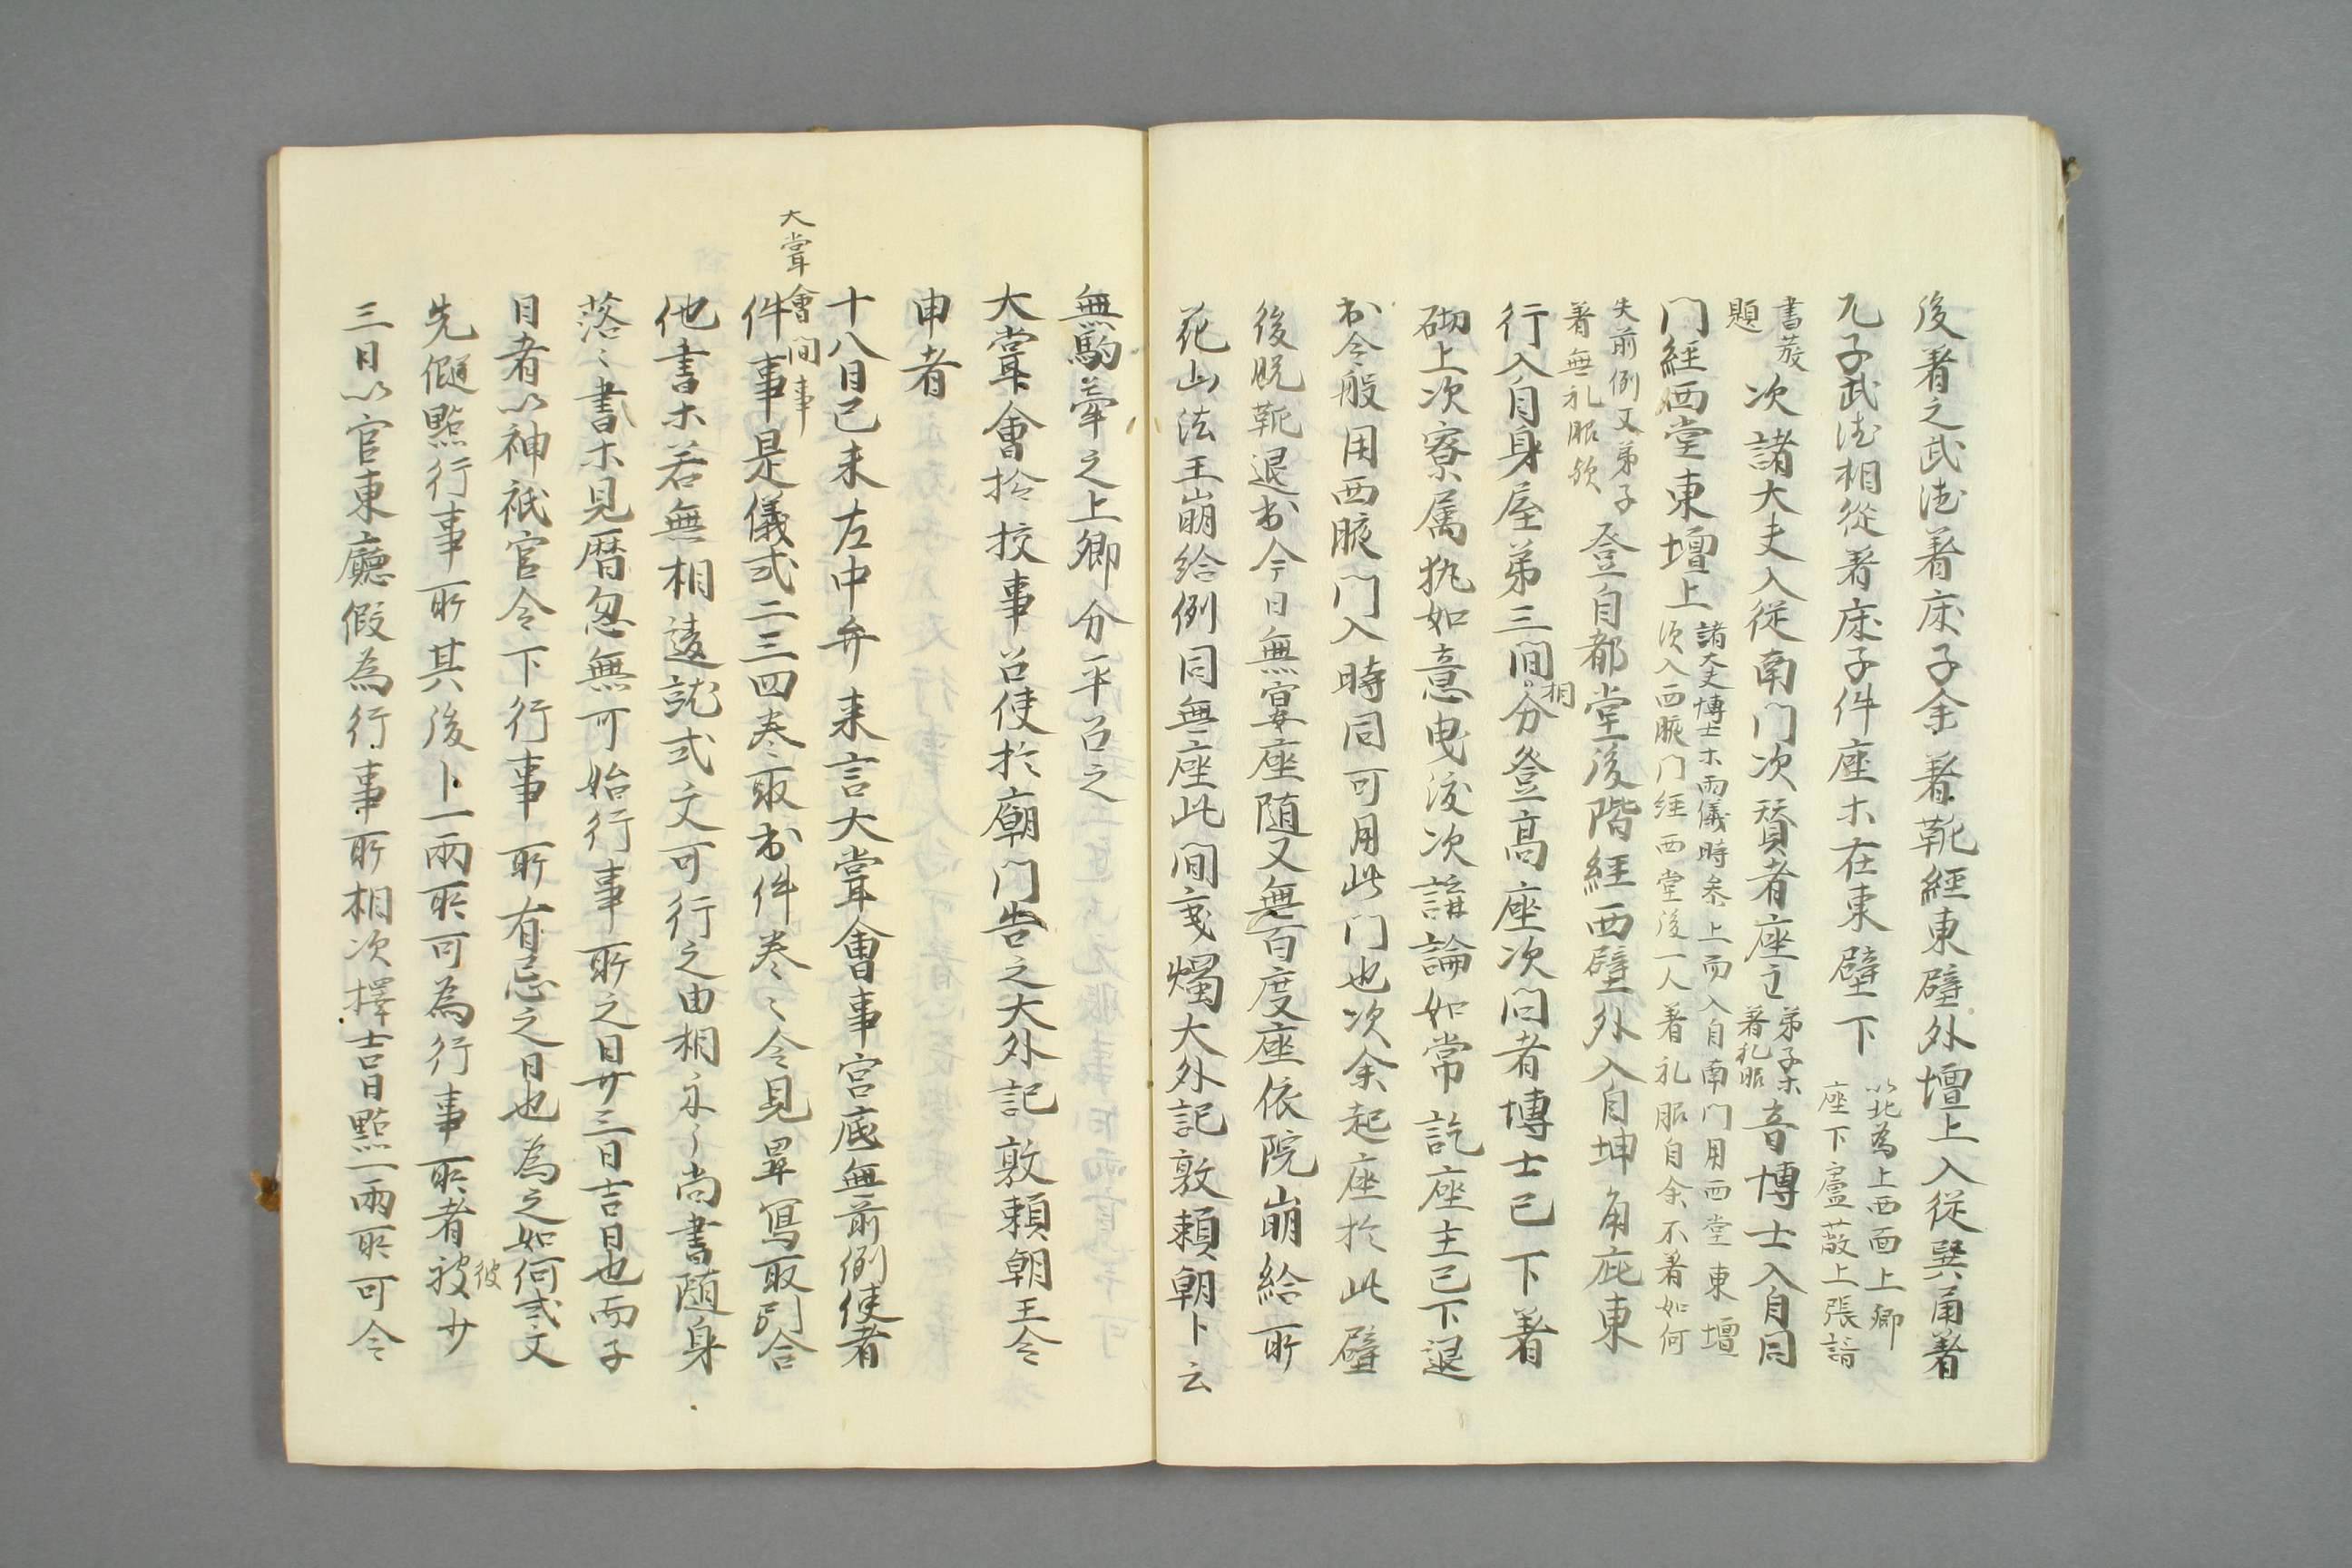 後著之武徳著床子余著靴經東壁外壇上入從巽角著
兀子武徳相從著床子件座木在東壁下
以北為上西面上卿
座下廬蔽上張諳
書䒳
題
次諸大夫入從南门次賛者座主
弟子木
著礼服
音博士入自同
门經西堂東壇上
諸大夫博士木雨儀時参上而入自南门用西堂東壇
須入西腋门經西堂後一人著礼服自余不著如何
失前例又弟子
著無礼服欤
登自都堂後階經西壁外入自坤角庇東
行入自身屋苐三間相分登高座次问者博士已下著
砌上次寮属執如意曳渡次講論如常訖座主已下退
出今般用西腋门入時同可用此门也次余起座於此壁
後脱靴退出今日無宴座随又無百度座依院崩給所
花山法王崩給例同無座此间亥燭大外記敦頼朝卜云
無駒牽之上卿分平召之
大甞會撿挍事召使於廟门告之大外記敦頼朝王令
申者
十八日己未左中弁来言大甞會事宮底無前例使者
大甞會间事
件事是儀式二三四巻取出件巻〻令見畢寫取引合
他書木若無相遠就式文可行之由相示了尚書随身
落〻書木見暦忽無可始行事所之日廿三日吉日也而子
日者以神祇官令下行事所有忌之日也為之如何式文
先儘點行事所其後卜一兩所可為行事所者被廿
彼
三日以官東廳假為行事所相次擇吉日點一兩所可令